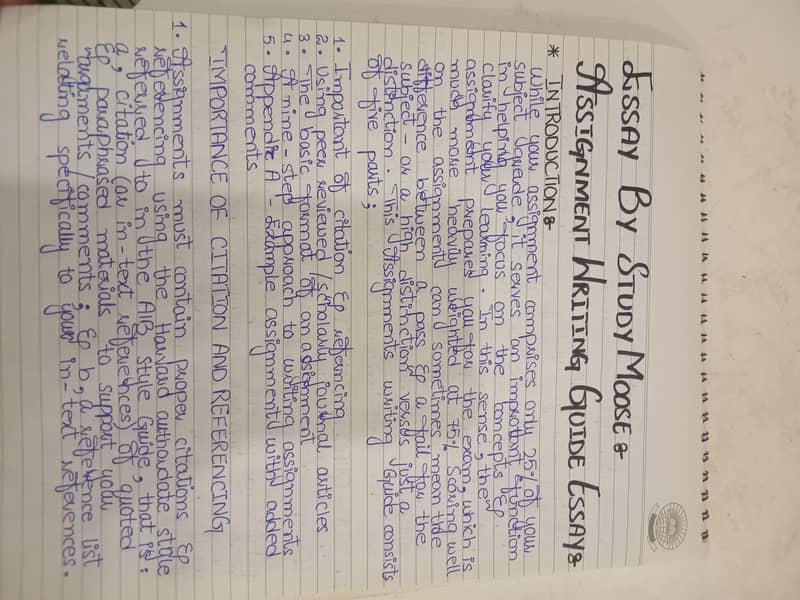 ESSAY BY STUDY MOOSE:-
ASSIGNMENT WRITING GUIDE ESSAY:-
* INTRODUCTION:-
While your assignment comprises only 25% of your
subject grade, it serves an important function
in helping you focus on the concepts &
clarify your learning. In this sense, the
assignment prepared you for the exam, which is
much more heavily weighted at 75%. Scoring well
on the assignment can sometimes mean the
difference between a pass & a fail for the
subject - or a high distinction versus just a
distinction. This Assignments writing Guide consists
of five parts;
1. Important of citation & referncing
2. Using peer reviewed/scholarly journal articles
3. The basic format of an assignment
4. A nine-step approach to writing assignments
5. Appendix A - Example assignment with added
comments
IMPORTANCE OF CITATION AND REFERENCING
1. Assignments must contain proper citations &
referencing using the Harvard author/date style
referred to in the AIB style Guide, that is:
a, citation (or in-text references) of quoted
& paraphrased materials to support your
arguments/comments; & b, a reference list
relating specifically to your in-text references.